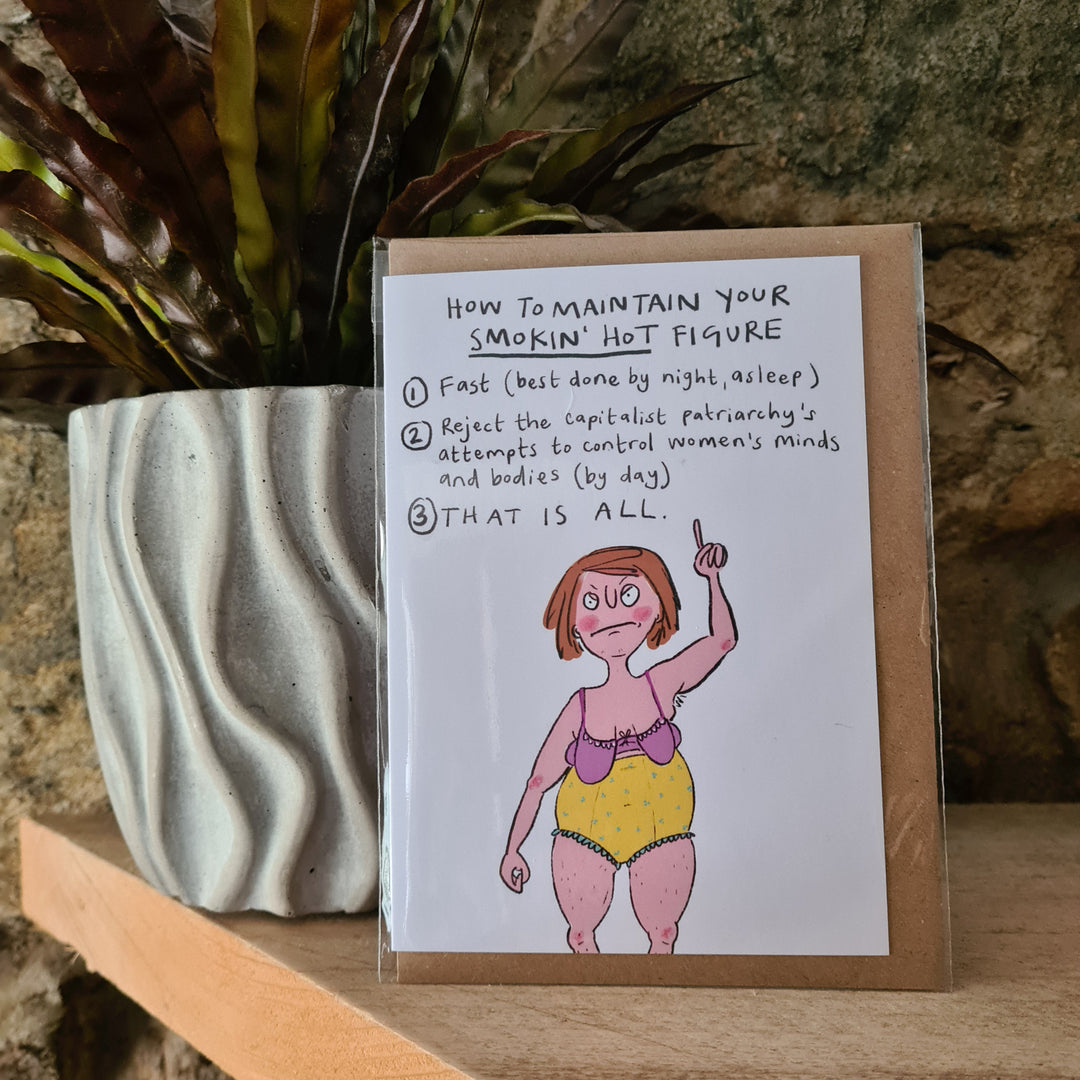 HOW TO MAINTAIN YOUR
SMOKIN' HOT FIGURE
① Fast (best done by night, asleep)
② Reject the capitalist patriarchy's
attempts to control women's minds
and bodies (by day)
③ THAT IS ALL.